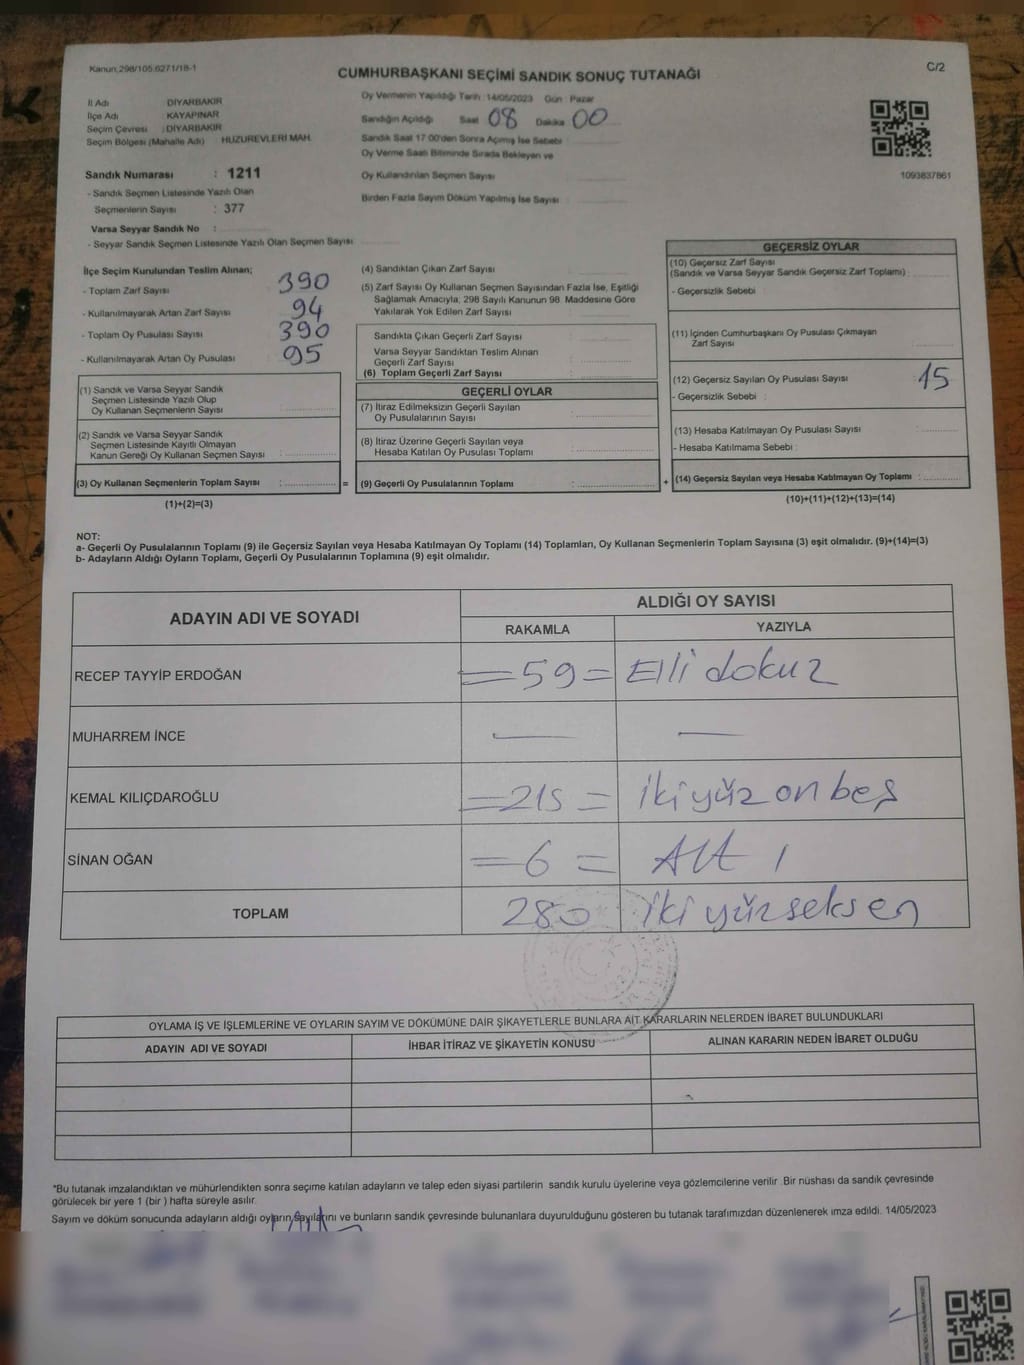 Kanun,298/105.6271/18-1
C/2
CUMHURBAŞKANI SEÇİMİ SANDIK SONUÇ TUTANAĞI
İl Adı DİYARBAKIR
İlçe Adı KAYAPINAR
Seçim Çevresi : DİYARBAKIR
Seçim Bölgesi (Mahalle Adı) HUZUREVLERİ MAH.
Oy Vermenin Yapıldığı Tarih :14/05/2023 Gün : Pazar
Sandığın Açıldığı Saat 08 Dakika 00
Sandık Saat 17:00'den Sonra Açımış İse Sebebi
Oy Verme Saati Bitiminde Sırada Bekleyen ve
Oy Kullandırılan Seçmen Sayısı
Birden Fazla Sayım Döküm Yapılmış İse Sayısı
1093837861
Sandık Numarası : 1211
- Sandık Seçmen Listesinde Yazılı Olan
Seçmenlerin Sayısı : 377
Varsa Seyyar Sandık No :
- Seyyar Sandık Seçmen Listesinde Yazılı Olan Seçmen Sayısı
İlçe Seçim Kurulundan Teslim Alınan;
- Toplam Zarf Sayısı 390
- Kullanılmayarak Artan Zarf Sayısı 94
- Toplam Oy Pusulası Sayısı 390
- Kullanılmayarak Artan Oy Pusulası 95
(1) Sandık ve Varsa Seyyar Sandık
Seçmen Listesinde Yazılı Olup
Oy Kullanan Seçmenlerin Sayısı :
(2) Sandık ve Varsa Seyyar Sandık
Seçmen Listesinde Kayıtlı Olmayan
Kanun Gereği Oy Kullanan Seçmen Sayısı :
(3) Oy Kullanan Seçmenlerin Toplam Sayısı : =
(1)+(2)=(3)
(4) Sandıktan Çıkan Zarf Sayısı
(5) Zarf Sayısı Oy Kullanan Seçmen Sayısından Fazla İse, Eşitliği
Sağlamak Amacıyla; 298 Sayılı Kanunun 98. Maddesine Göre
Yakılarak Yok Edilen Zarf Sayısı
Sandıkta Çıkan Geçerli Zarf Sayısı
Varsa Seyyar Sandıktan Teslim Alınan
Geçerli Zarf Sayısı
(6) Toplam Geçerli Zarf Sayısı
GEÇERLİ OYLAR
(7) İtiraz Edilmeksizin Geçerli Sayılan
Oy Pusulalarının Sayısı
(8) İtiraz Üzerine Geçerli Sayılan veya
Hesaba Katılan Oy Pusulası Toplamı
(9) Geçerli Oy Pusulalarının Toplamı : +
GEÇERSİZ OYLAR
(10) Geçersiz Zarf Sayısı
(Sandık ve Varsa Seyyar Sandık Geçersiz Zarf Toplamı)
- Geçersizlik Sebebi :
(11) İçinden Cumhurbaşkanı Oy Pusulası Çıkmayan
Zarf Sayısı
(12) Geçersiz Sayılan Oy Pusulası Sayısı 15
- Geçersizlik Sebebi :
(13) Hesaba Katılmayan Oy Pusulası Sayısı
- Hesaba Katılmama Sebebi :
(14) Geçersiz Sayılan veya Hesaba Katılmayan Oy Toplamı :
(10)+(11)+(12)+(13)=(14)
NOT:
a- Geçerli Oy Pusulalarının Toplamı (9) ile Geçersiz Sayılan veya Hesaba Katılmayan Oy Toplamı (14) Toplamları, Oy Kullanan Seçmenlerin Toplam Sayısına (3) eşit olmalıdır. (9)+(14)=(3)
b- Adayların Aldığı Oyların Toplamı, Geçerli Oy Pusulalarının Toplamına (9) eşit olmalıdır.
ADAYIN ADI VE SOYADI
ALDIĞI OY SAYISI
RAKAMLA YAZIYLA
RECEP TAYYİP ERDOĞAN =59= Elli dokuz
MUHARREM İNCE — —
KEMAL KILIÇDAROĞLU =215= iki yüz on beş
SİNAN OĞAN =6= Altı
TOPLAM 280 iki yüz seksen
OYLAMA İŞ VE İŞLEMLERİNE VE OYLARIN SAYIM VE DÖKÜMÜNE DAİR ŞİKAYETLERLE BUNLARA AİT KARARLARIN NELERDEN İBARET BULUNDUKLARI
ADAYIN ADI VE SOYADI İHBAR İTİRAZ VE ŞİKAYETİN KONUSU ALINAN KARARIN NEDEN İBARET OLDUĞU
*Bu tutanak imzalandıktan ve mühürlendikten sonra seçime katılan adayların ve talep eden siyasi partilerin sandık kurulu üyelerine veya gözlemcilerine verilir. Bir nüshası da sandık çevresinde
görülecek bir yere 1 (bir) hafta süreyle asılır.
Sayım ve döküm sonucunda adayların aldığı oyların sayılarını ve bunların sandık çevresinde bulunanlara duyurulduğunu gösteren bu tutanak tarafımızdan düzenlenerek imza edildi. 14/05/2023